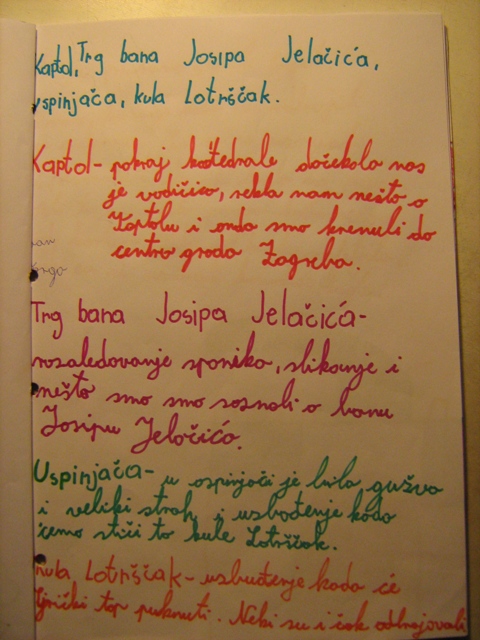 Kaptol, Trg bana Josipa Jelačića,
uspinjača, kula Lotrščak.
Kaptol- pokraj katedrale dočekala nas
je vodičica, rekla nam nešto o
Kaptolu i onda smo krenuli do
centra grada Zagreba.
Trg bana Josipa Jelačića-
razgledovanje spomika, slikanje i
nešto smo smo saznali o banu
Josipu Jelačiću.
Uspinjača- u uspinjači je bila gužva
i veliki strah i uzbođenje kada
ćemo stići to kule Lotrščak.
kula Lotrščak- uzbuđenje kada će
Grički top puknuti. Neki su i čak odbrojavali